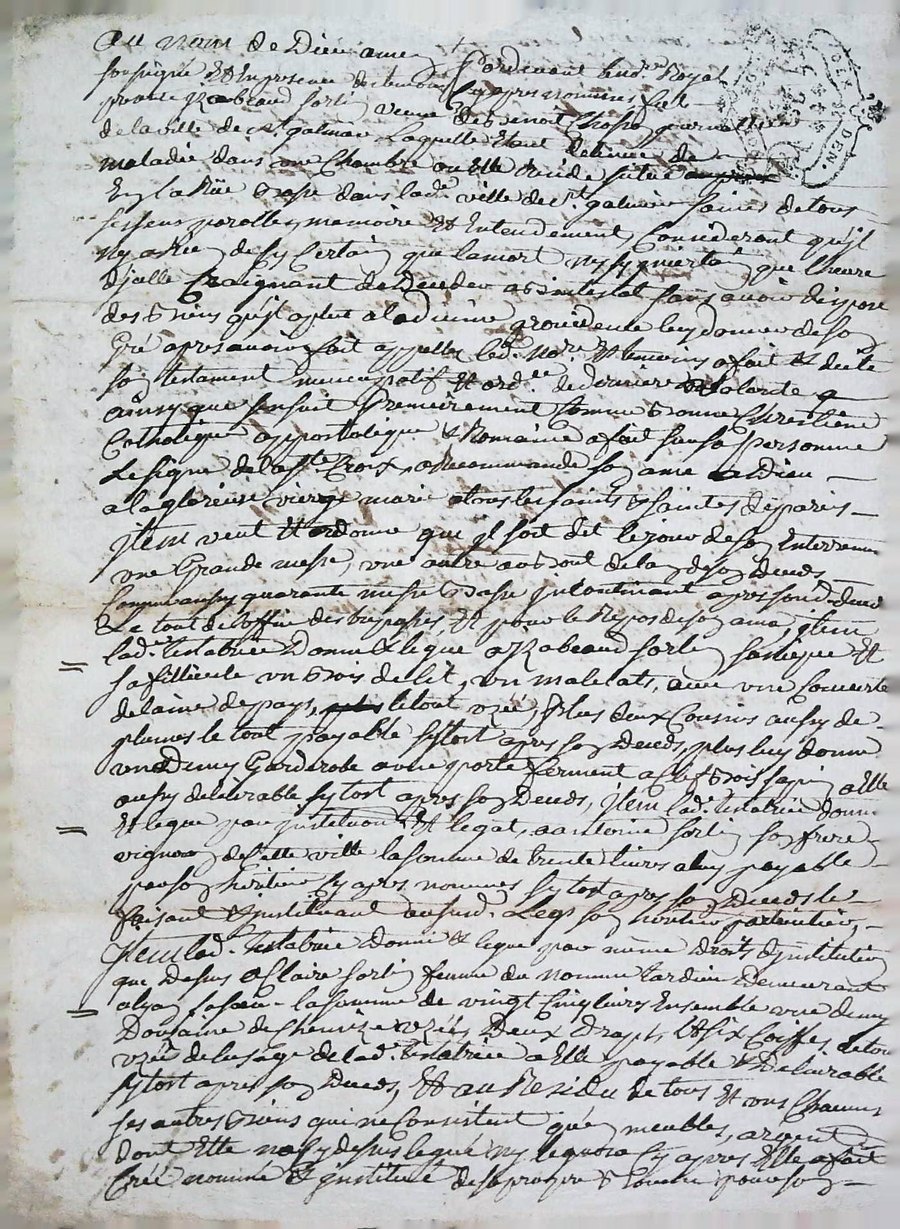 Au nom de Dieu amen pardevant le no.re Royal
soussigné Et En presence des temoins Cy apres nommes, fut
presente izabeaud fortin veuve de benoit Chape journallier
de la ville de St. galmier Laquelle Etant detenue de
maladie dans une Chambre ou Elle Reside située
En la Rüe basse dans lad.e ville de St. galmier saine de tous
ses sens parolle, memoire Et Entendement, Considerant qu'il
ny a Rien de sy Certain que la mort ny sy incertain que lheure
d'jcelle Craignant de deceder abintestat sans avoir disposé
des biens qu'il a plut a la divine providence luy donner de son
Gré apres avoir fait appeller led. No.re Et temoins a fait Et dicté
son testament nuncupatif Et ord.re de derniere volonté
ainsy que sensuit Premierement Comme bonne Chrestienne
Catholique appostolique & Romaine a fait sur sa personne
Le signe de la Ste Croix, a Recommandé son ame a dieu
a la glorieuse vierge marie a tous les saints & saintes de paradis
jtem veut Et ordonne que jl soit dit le jour de son Enterrem.
une Grande messe, une autre au bout de lan de son deceds,
Comme aussy quarante messe basse jncontinant apres sond. deceds
& le tout de Loffice des trepasses, Et pour le Repos de son ame, jtem
lad. testatrice Donne & legue a izabeaud fortin sa niepce Et
sa fillieule un bois de lit, un matelats, avec une Couverte
de laine de pays, le tout uzée, Plus deux Coussins aussy de
plumes le tout payable sytost apres son Deceds, plus luy donne
un Demy Garderobe a une porte fermant a Clef bois sapin a Elle
aussy delivrable sytost apres son Deceds, jtem lad. testatrice donne
Et legue par institution Et legat, a antoine fortin son frere
vigneron de Cette ville la somme de trente livres a luy payable
par son heritier Cy apres nommés sytost apres son Deceds le
faisant & jnstituant au susd. Legs son heritier particulier,
jtem lad. testatrice donne & legue par même Droits d'institution
que Dessus a Claire fortin femme du nommé tardieu Demeurant
a lyon sa soeur la somme de vingt Cinq livres Ensemble une demy
Douzaine de Chemize uzées, Deux Draps, & six Coiffes le tout
uzée de lusage de lad. testatrice a Elle payable & Delivrable
sytost apres son Deceds, Et au Residu de tous Et uns Chacuns
ses autres biens qui ne Consistent qu'en meubles, argent
dont Elle n'a Cy dessus legué ny leguera Cy apres Elle a fait
Créé nommé & jnstitué de sa propre bouche pour son